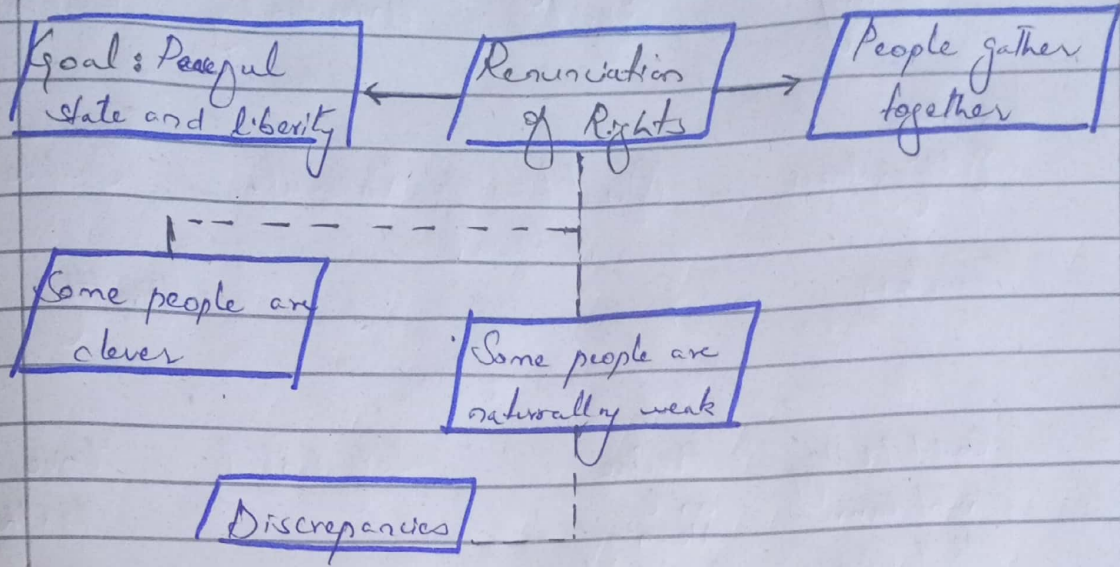 Goal : Peaceful
state and liberity
Renunciation
of Rights
People gather
together
Some people are
clever
Some people are
naturally weak
Discrepancies